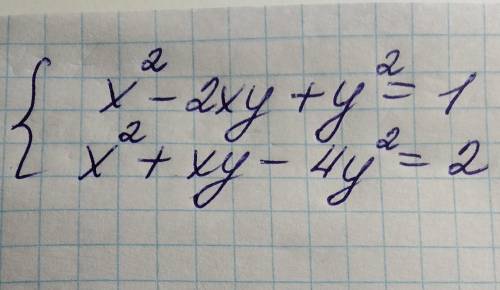 x² - 2xy + y² = 1
x² + xy - 4y² = 2